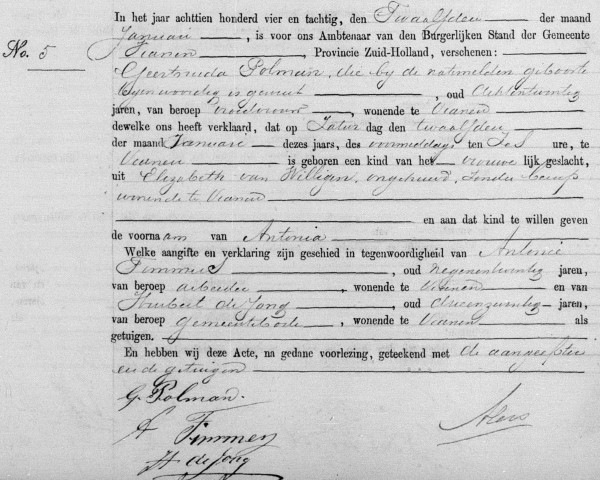 In het jaar achttien honderd vier en tachtig, den Twaalfden der maand
No. 5 Januari, is voor ons Ambtenaar van den Burgerlijken Stand der Gemeente
Vianen, Provincie Zuid-Holland, verschenen:
Geertruida Polman, die by de natemelden geboorte
tegenwoordig is geweest, oud
jaren, van beroep vroedvrouw, wonende te Vianen
dewelke ons heeft verklaard, dat op Zatur dag den twaalfden
der maand Januari dezes jaars, des voormiddags ten zes ure, te
Vianen is geboren een kind van het vrouwe lijk geslacht,
uit Elizabeth van Willigen, ongehuwd, zonder beroep
wonende te Vianen
en aan dat kind te willen geven
de voornaam van Antonia
Welke aangifte en verklaring zijn geschied in tegenwoordigheid van Antonie
Timmer, oud negenentwintig jaren,
van beroep arbeider, wonende te Vianen en van
Huibert de Jong, oud jaren,
van beroep gemeentebode, wonende te Vianen als
getuigen.
En hebben wij deze Acte, na gedane voorlezing, geteekend met de aangeefster
en de getuigen
G. Polman.
A Timmer
H de Jong